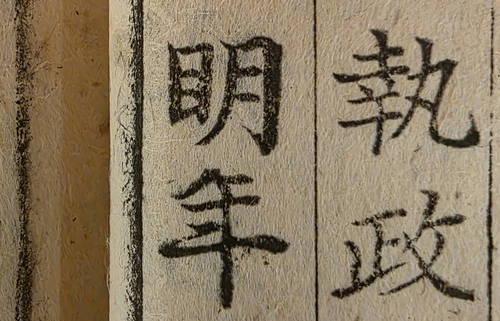 執政
明年